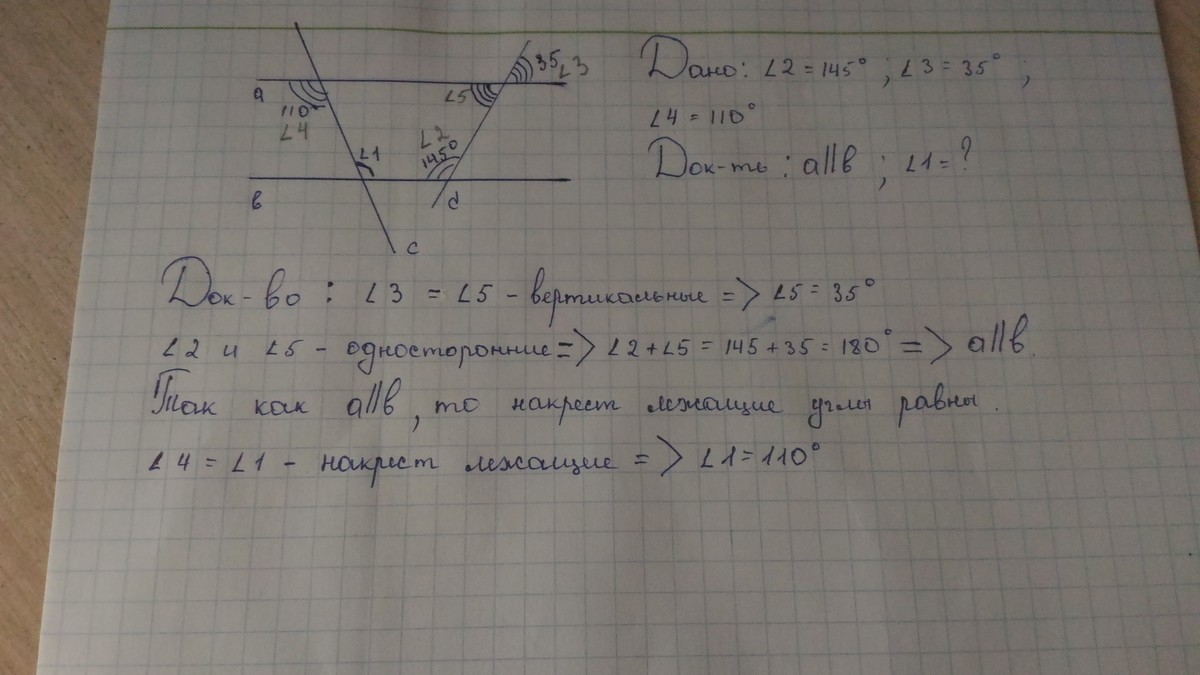 a
110
∠4
∠1
∠5
35
∠3
∠2
145°
в
d
c
Дано: ∠2 = 145° ; ∠3 = 35° ;
∠4 = 110°
Док-ть : a||в ; ∠1 = ?
Док-во : ∠3 = ∠5 - вертикальные => ∠5 = 35°
∠2 и ∠5 - односторонние => ∠2 + ∠5 = 145 + 35 = 180° => a||в.
Так как a||в, то накрест лежащие углы равны.
∠4 = ∠1 - накрест лежащие => ∠1 = 110°